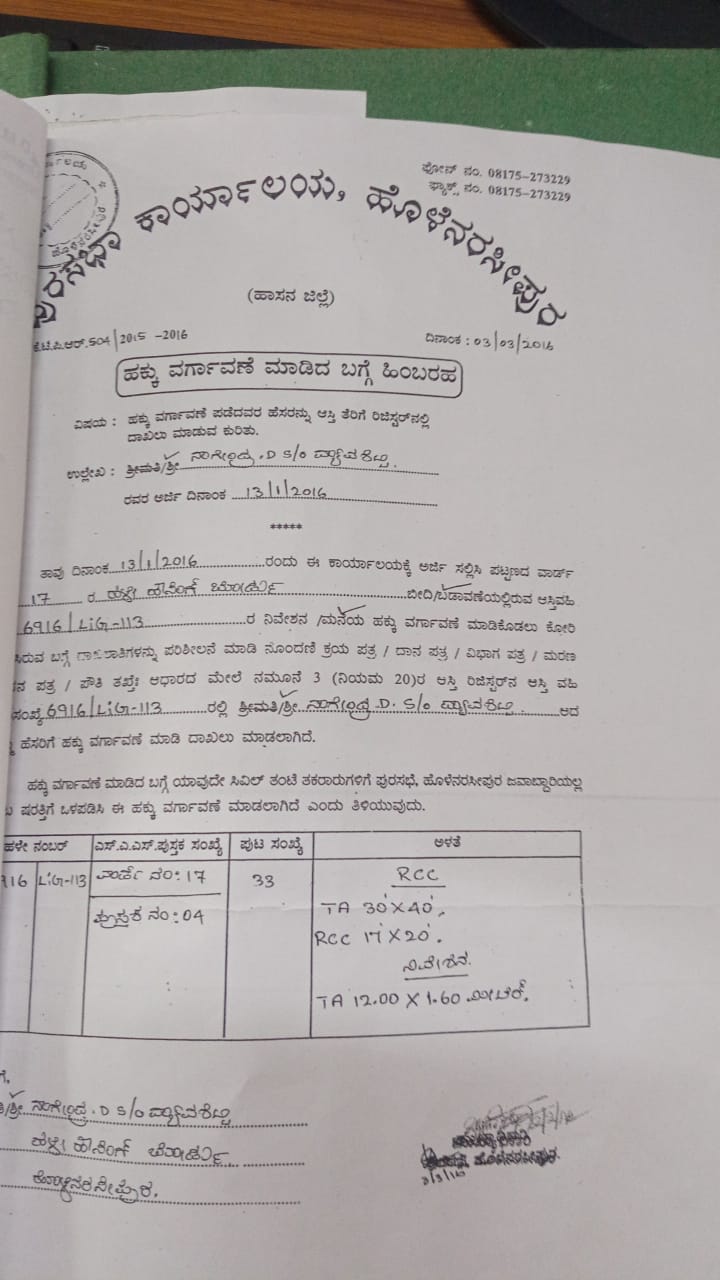 ಫೋನ್ ನಂ. 08175-273229
ಫ್ಯಾಕ್ಸ್ ನಂ. 08175-273229
ಪುರಸಭಾ ಕಾರ್ಯಾಲಯ, ಹೊಳೆನರಸೀಪುರ
(ಹಾಸನ ಜಿಲ್ಲೆ)
ಕೆ.ಟಿ.ಪಿ.ಆರ್.504/2015-2016
ದಿನಾಂಕ : 03/03/2016
ಹಕ್ಕು ವರ್ಗಾವಣೆ ಮಾಡಿದ ಬಗ್ಗೆ ಹಿಂಬರಹ
ವಿಷಯ : ಹಕ್ಕು ವರ್ಗಾವಣೆ ಪಡೆದವರ ಹೆಸರನ್ನು ಆಸ್ತಿ ತೆರಿಗೆ ರಿಜಿಸ್ಟರ್‌ನಲ್ಲಿ
ದಾಖಲು ಮಾಡುವ ಕುರಿತು.
ಉಲ್ಲೇಖ : ಶ್ರೀಮತಿ/ಶ್ರೀ ನಾಗೇಂದ್ರ.D S/o
ರವರ ಅರ್ಜಿ ದಿನಾಂಕ 13/1/2016
*****
ತಾವು ದಿನಾಂಕ 13/1/2016 ರಂದು ಈ ಕಾರ್ಯಾಲಯಕ್ಕೆ ಅರ್ಜಿ ಸಲ್ಲಿಸಿ ಪಟ್ಟಣದ ವಾರ್ಡ್
17 ರ ಹಳೇ ಹೌಸಿಂಗ್ ಬೋರ್ಡ್ ಬೀದಿ/ಬಡಾವಣೆಯಲ್ಲಿರುವ ಆಸ್ತಿವಹಿ
6916/LiG-113 ರ ನಿವೇಶನ /ಮನೆಯ ಹಕ್ಕು ವರ್ಗಾವಣೆ ಮಾಡಿಕೊಡಲು ಕೋರಿ
ಸಿರುವ ಬಗ್ಗೆ ದಾಖಲಾತಿಗಳನ್ನು ಪರಿಶೀಲನೆ ಮಾಡಿ ನೊಂದಣಿ ಕ್ರಯ ಪತ್ರ / ದಾನ ಪತ್ರ / ವಿಭಾಗ ಪತ್ರ / ಮರಣ
ನ ಪತ್ರ / ಪೌತಿ ತಖ್ತೆ ಆಧಾರದ ಮೇಲೆ ನಮೂನೆ 3 (ನಿಯಮ 20)ರ ಆಸ್ತಿ ರಿಜಿಸ್ಟರ್‌ನ ಆಸ್ತಿ ವಹಿ
ಸಂಖ್ಯೆ 6916/LiG-113 ರಲ್ಲಿ ಶ್ರೀಮತಿ/ಶ್ರೀ ನಾಗೇಂದ್ರ D. S/o ಆದ
ಹೆಸರಿಗೆ ಹಕ್ಕು ವರ್ಗಾವಣೆ ಮಾಡಿ ದಾಖಲು ಮಾಡಲಾಗಿದೆ.
ಹಕ್ಕು ವರ್ಗಾವಣೆ ಮಾಡಿದ ಬಗ್ಗೆ ಯಾವುದೇ ಸಿವಿಲ್ ತಂಟೆ ತಕರಾರುಗಳಿಗೆ ಪುರಸಭೆ, ಹೊಳೆನರಸೀಪುರ ಜವಾಬ್ದಾರಿಯಲ್ಲ
ಷರತ್ತಿಗೆ ಒಳಪಡಿಸಿ ಈ ಹಕ್ಕು ವರ್ಗಾವಣೆ ಮಾಡಲಾಗಿದೆ ಎಂದು ತಿಳಿಯುವುದು.
ಹಳೇ ನಂಬರ್ ಎಸ್.ಎ.ಎಸ್.ಪುಸ್ತಕ ಸಂಖ್ಯೆ ಪುಟ ಸಂಖ್ಯೆ ಅಳತೆ
916 LiG-113 ವಾರ್ಡ್ ನಂ:17 33 RCC
ಪುಸ್ತಕ ನಂ:04 TA 30'X40'.
RCC 17'X20'.
ನಿವೇಶನ.
TA 12.00 X 1.60 ಮೀಟರ್.
ಶ್ರೀ ನಾಗೇಂದ್ರ.D S/o
ಹಳೇ ಹೌಸಿಂಗ್ ಬೋರ್ಡ್
ಹೊಳೆನರಸೀಪುರ.
ಹೊಳೆನರಸೀಪುರ.
3/3/16